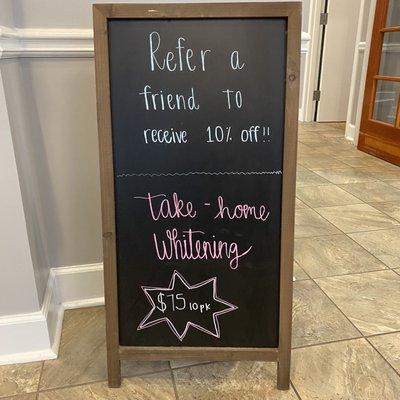 Refer a
friend to
receive 10% off!!
Take-home
Whitening
$75 10pk